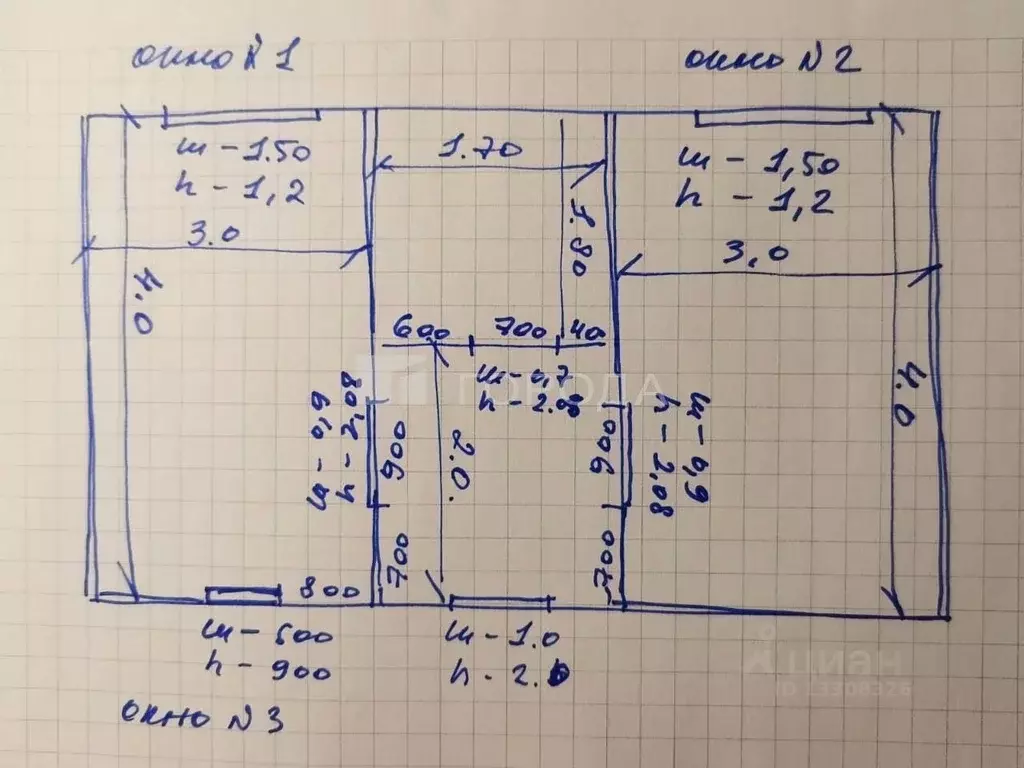 окно №1
окно №2
ш - 1.50
h - 1,2
1.70
ш - 1,50
h - 1,2
3.0
1.80
3,0
4.0
600
700
40
ш - 0,7
h - 2.08
ГОРОДА
ш - 0,9
h - 2,08
900
2.0.
900
ш - 0,9
h - 2,08
4.0
700
700
800
ш - 500
h - 900
ш - 1.0
h - 2.0
окно №3
циан